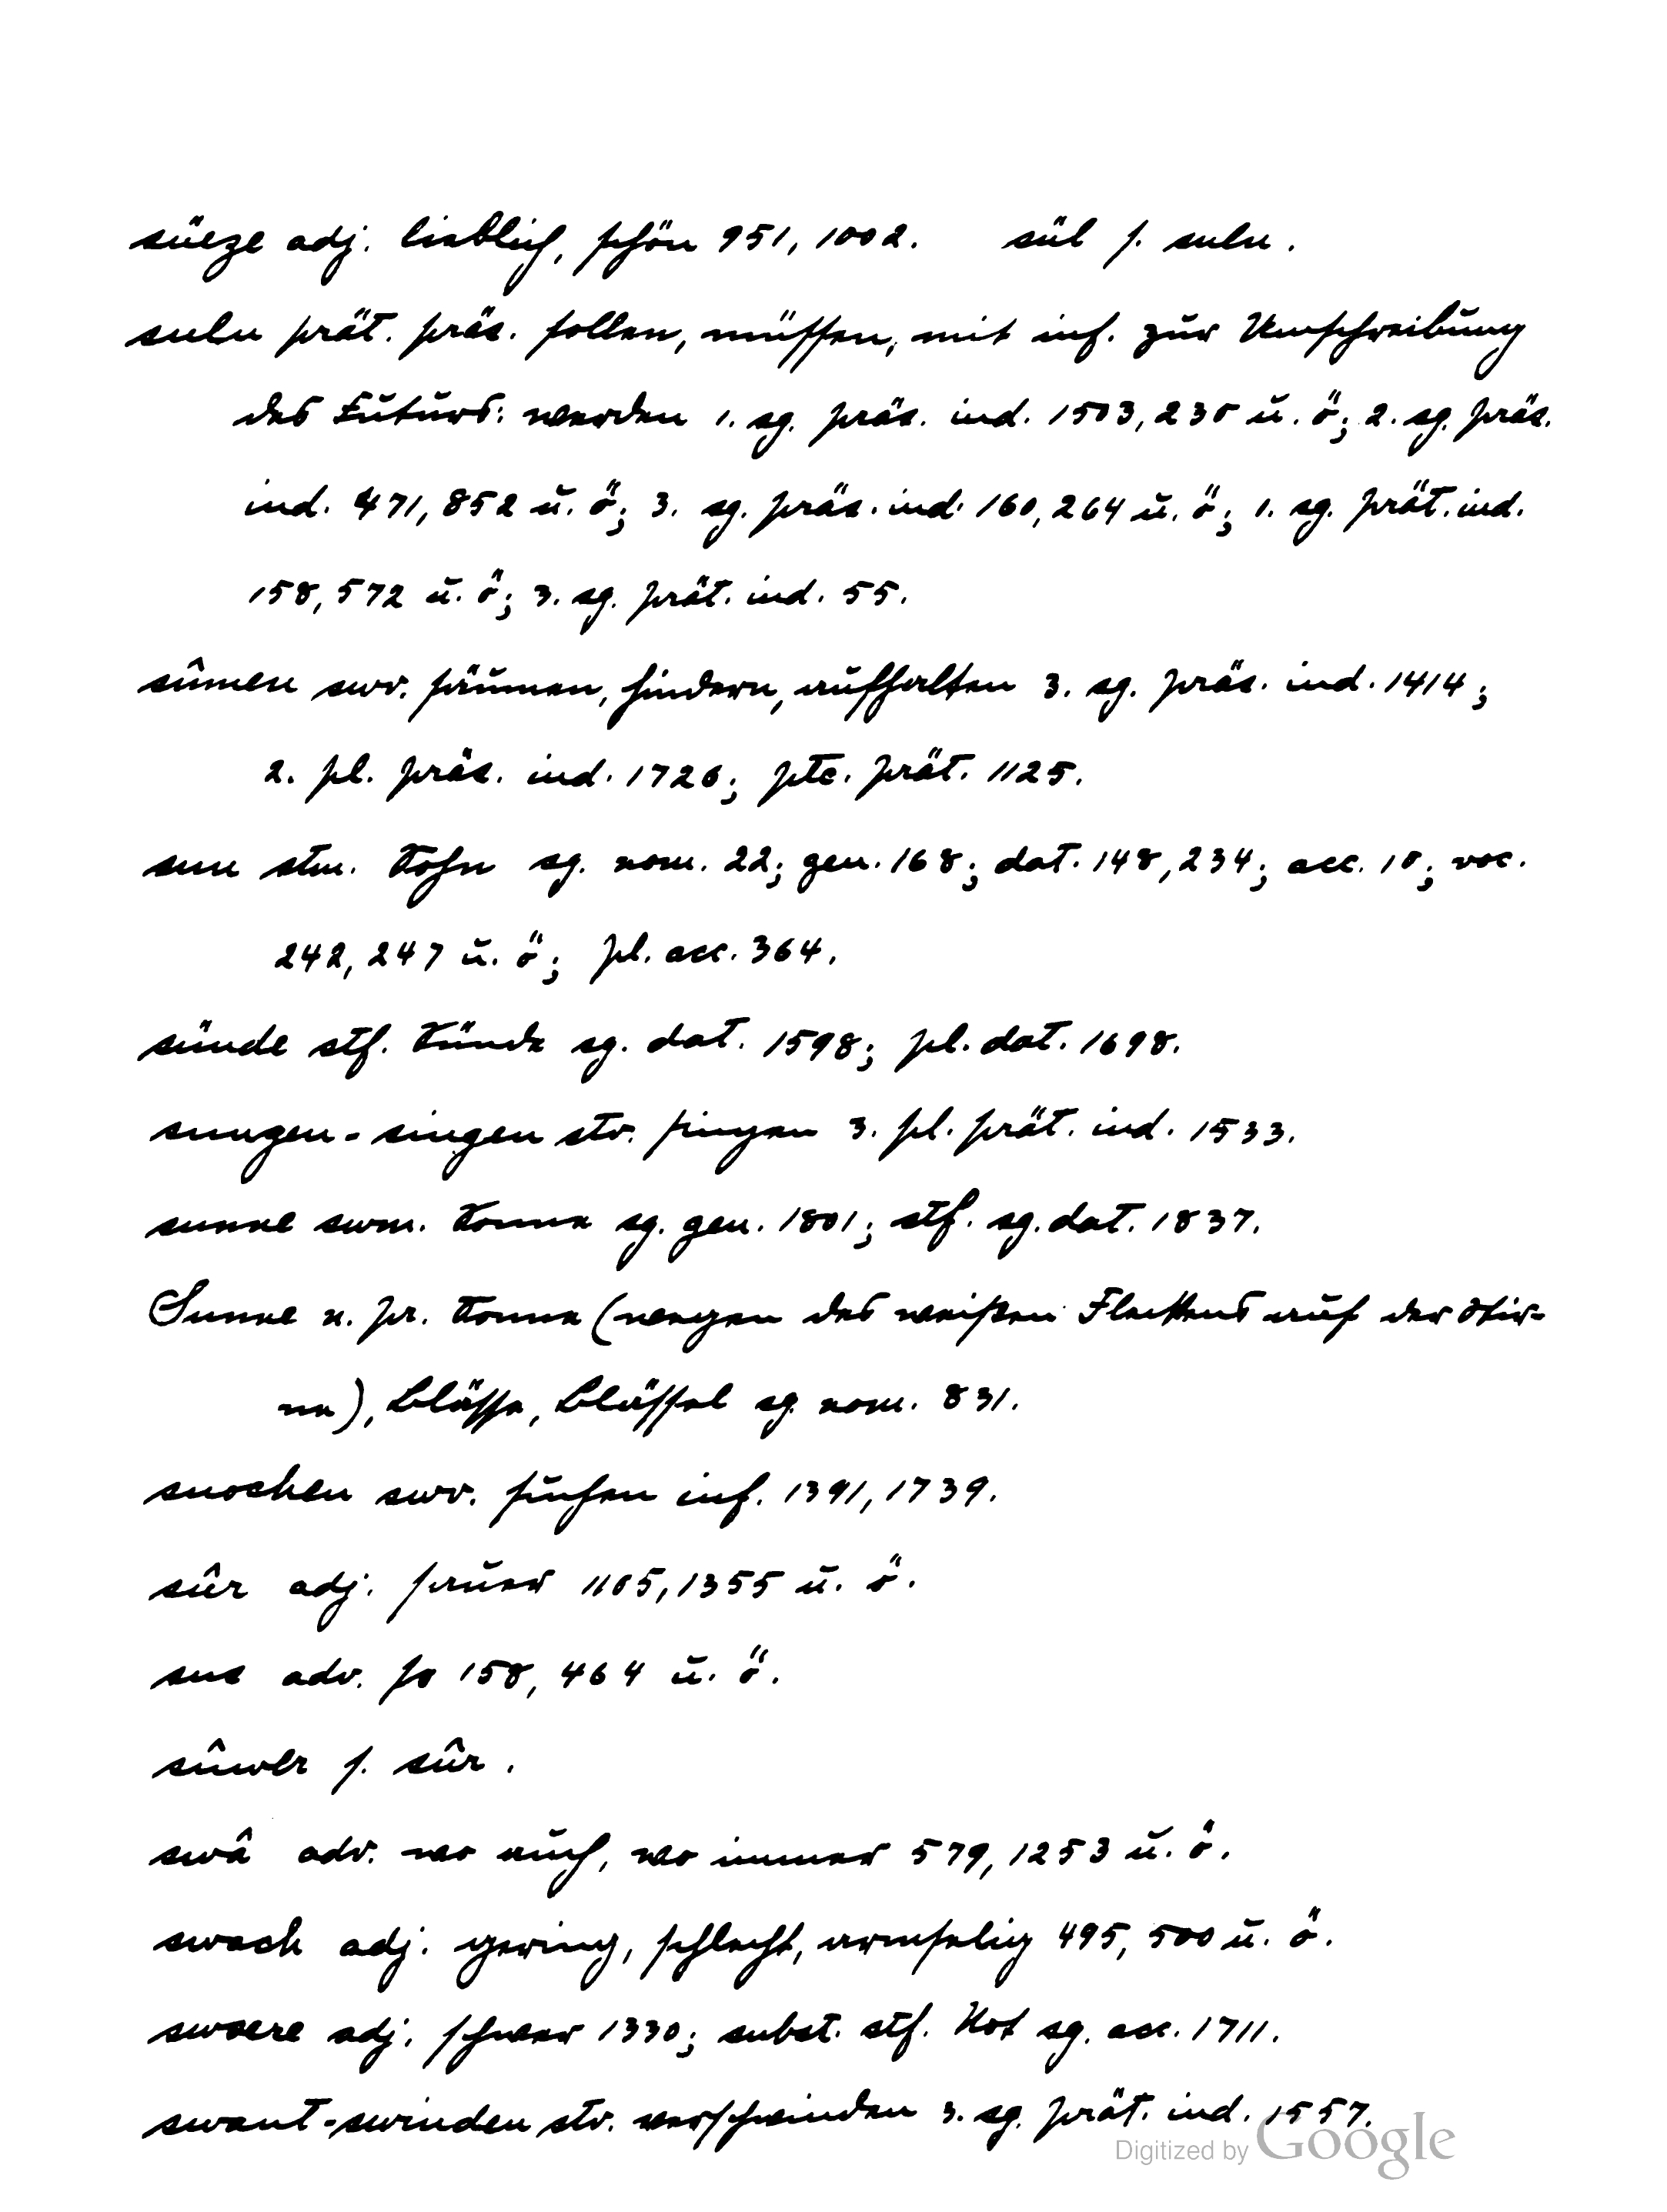 süeze adj. lieblich, schön 951, 1002. sül s. suln.
suln prät. präs. sollen, müssen, mit inf. zur Umschreibung
des Futurs: werden 1. sg. präs. ind. 1503, 230 u. ö; 2. sg. präs.
ind. 471, 852 u. ö; 3. sg. präs. ind. 160, 264 u. ö; 1. sg. prät. ind.
158, 572 u. ö; 3. sg. prät. ind. 55.
sûmen swv. säumen, hindern, aufhalten 3. sg. präs. ind. 1414;
2. pl. präs. ind. 1726; ptc. prät. 1125.
sun stm. Sohn sg. nom. 22; gen. 168; dat. 148, 234; acc. 10; voc.
242, 247 u. ö; pl. acc. 364.
sünde stf. Sünde sg. dat. 1598; pl. dat. 1698.
sungen - singen stv. singen 3. pl. prät. ind. 1533.
sunne swm. Sonne sg. gen. 1801; stf. sg. dat. 1837.
Sunne n. pr. Sonne (wegen des weißen Fleckens auf der Stir-
ne), Blässe, Blässel sg. nom. 831.
suochen swv. suchen inf. 1391, 1739.
sûr adj. sauer 1105, 1355 u. ö.
sus adv. so 158, 464 u. ö.
sûwer s. sûr.
swâ adv. wo auch, wo immer 579, 1253 u. ö.
swach adj. gering, schlecht, armselig 495, 500 u. ö.
swaere adj. schwer 1330; subst. stf. Not sg. acc. 1711.
swant - swinden stv. verschwinden 3. sg. prät. ind. 1557.
Digitized by Google